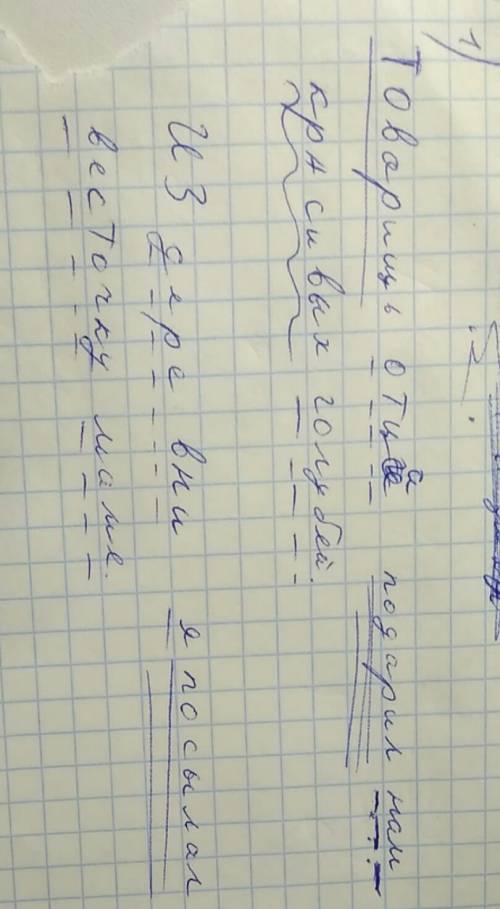 1)
Товарищь отца подарил нам
красивых голубей.
Из деревни я посылал
весточку маме.